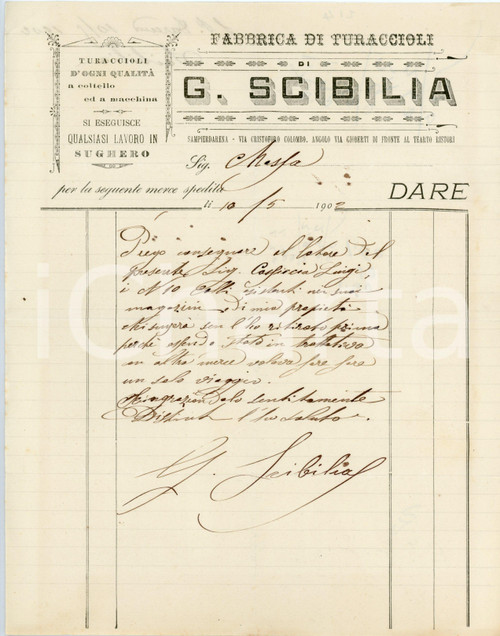 FABBRICA DI TURACCIOLI
DI
G. SCIBILIA
TURACCIOLI
D'OGNI QUALITÀ
a coltello
ed a macchina
SI ESEGUISCE
QUALSIASI LAVORO IN
SUGHERO
SAMPIERDARENA - VIA CRISTOFORO COLOMBO, ANGOLO VIA GIOBERTI DI FRONTE AL TEARTO RISTORI
Sig. Massa
per la seguente merce spedita
DARE
li 10/5 1902
Prego consegnare al latore del
presente Sig. Luigi,
i N 10 Colli esistenti nei suoi
magazini, di mia proprietà
che non l'ho ritirato prima
perché essendo stato in trattativa
in altra merce voleva fare fare
un solo viaggio.
Ringraziandolo sentitamente
Distint. l'ho saluto.
G. Scibilia